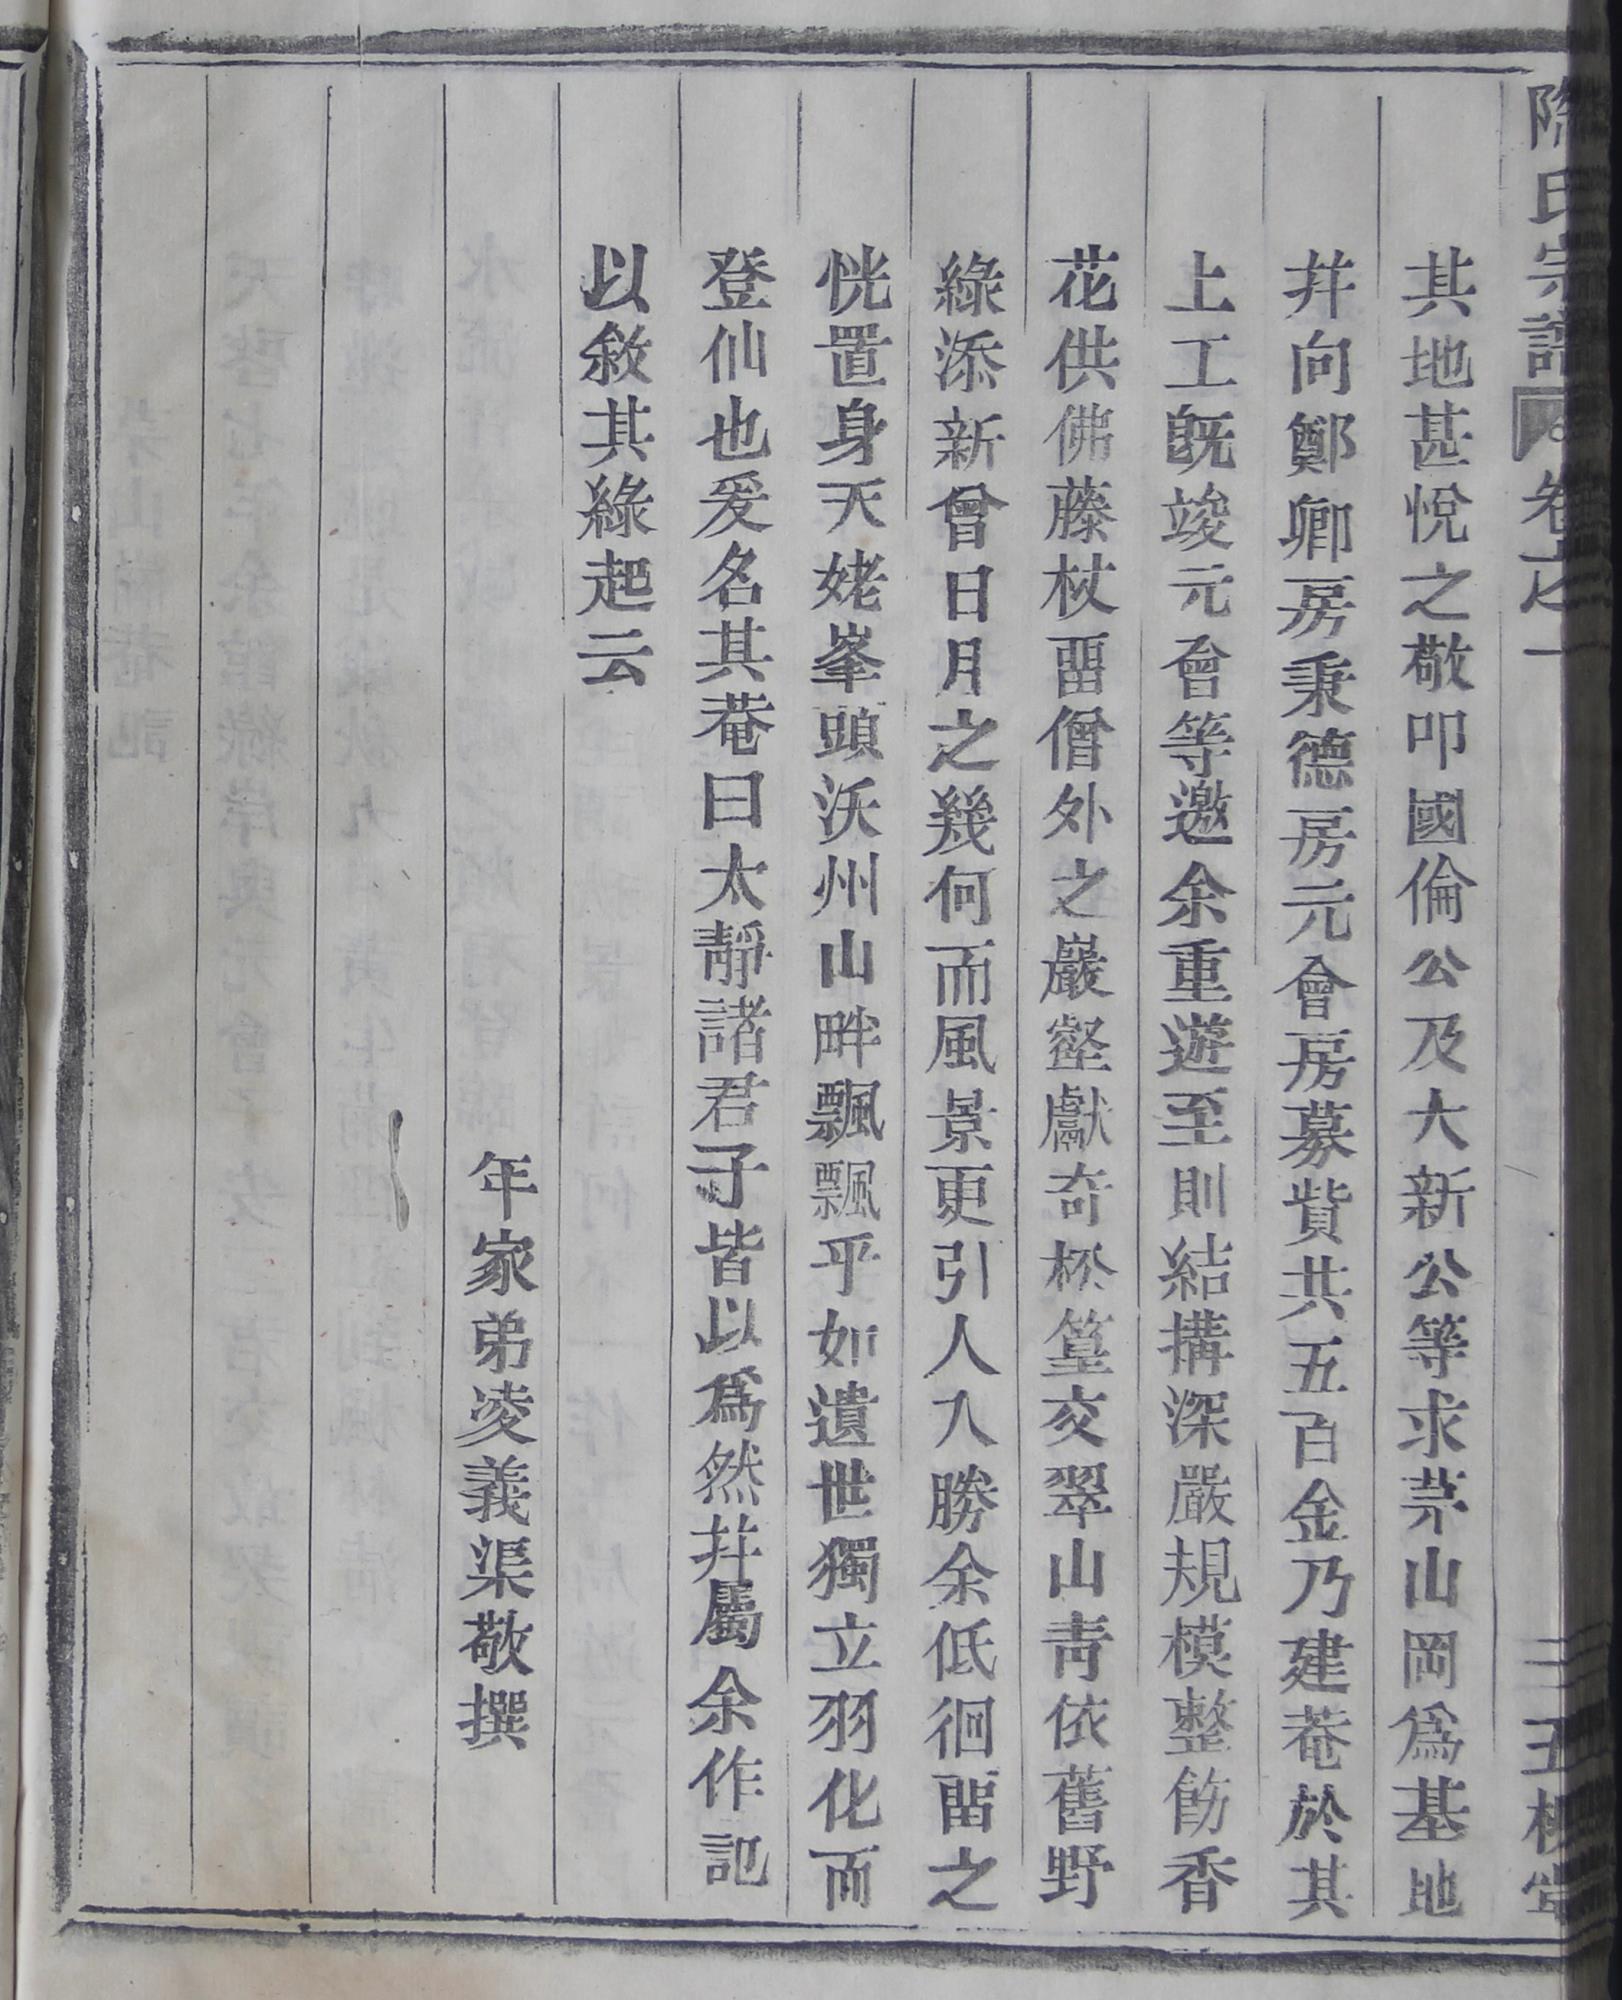 氏宗譜 卷之一 三五 槐堂
其地甚悅之敬叩國倫公及大新公等求茅山岡爲基地
幷向鄭卿房秉德房元會房募貲共五百金乃建菴於其
上工旣竣元會等邀余重遊至則結搆深嚴規模整飭香
花供佛藤杖畱僧外之巖壑獻奇松篁交翠山靑依舊野
綠添新曾日月之幾何而風景更引人入勝余低徊畱之
恍置身天姥峯頭沃州山畔飄飄乎如遺世獨立羽化而
登仙也爰名其菴曰太靜諸君子皆以爲然幷屬余作記
以敘其綠起云
年家弟凌義渠敬撰